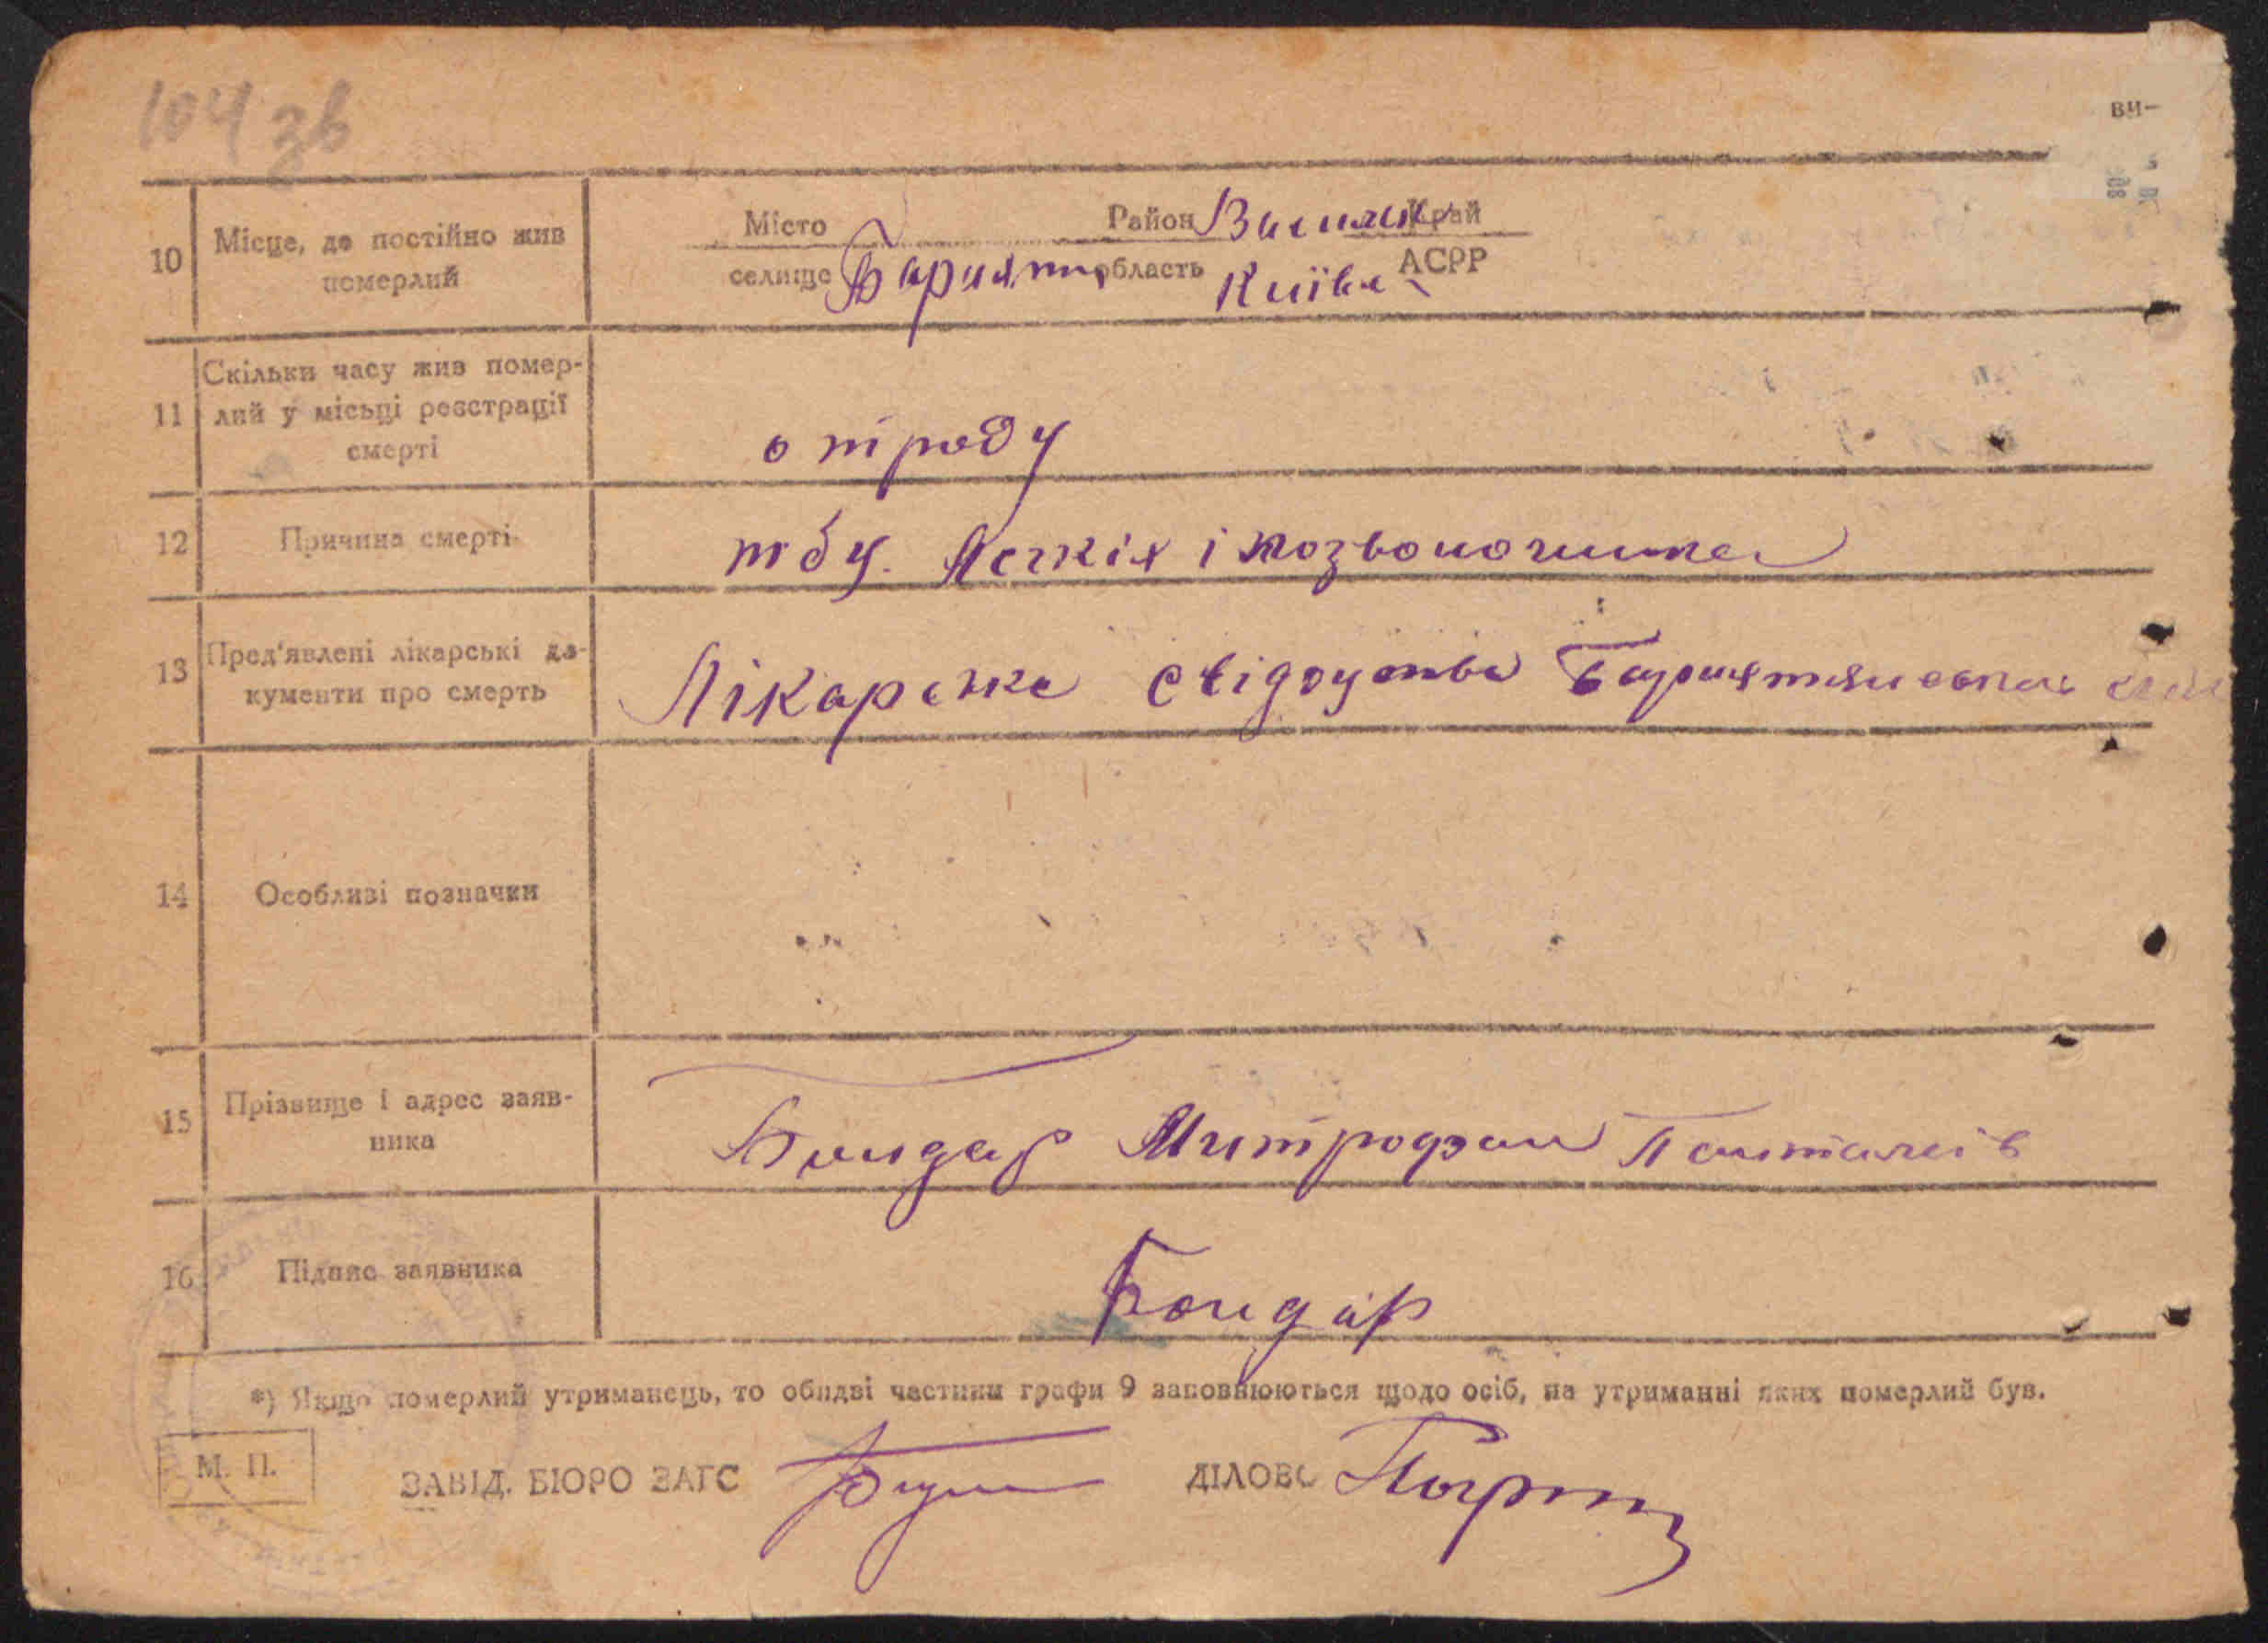 104 зв
ви-
10 Місце, де постійно жив
померлий
Місто Район Васильк Край
селище Барахти область Київск АСРР
11 Скільки часу жив помер-
лий у місьці реєстрації
смерті
отроду
12 Причина смерті
тбц. Легкіх і позвоночника
13 Пред'явлені лікарські до-
кументи про смерть
Лікарське свідоцтво
14 Особливі позначки
15 Прізвище і адрес заяв-
ника
Бондар Митрофан Панталеів
16 Підпис заявника
Бондар
*) Якщо померлий утриманець, то обидві частини графи 9 заповнюються щодо осіб, на утриманні яких померлий був.
М. П.
ЗАВІД. БЮРО ЗАГС ДІЛОВО